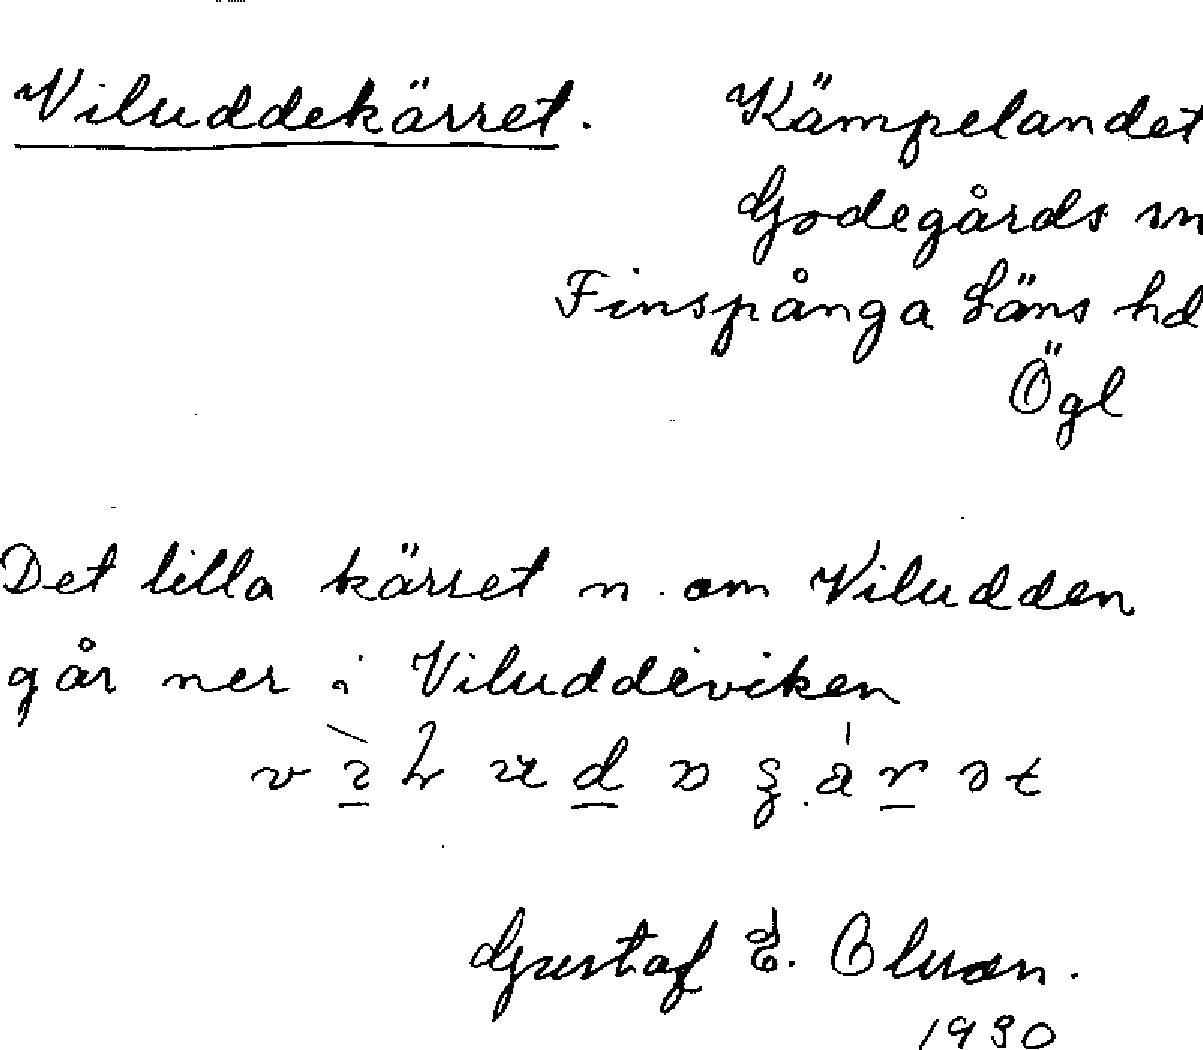 Viluddekärret. Kämpelandet
Godegårds sn
Finspånga Läns hd
Ögl
Det lilla kärret n. om Viludden
går ner i Viluddeviken
Gustaf E.
1930